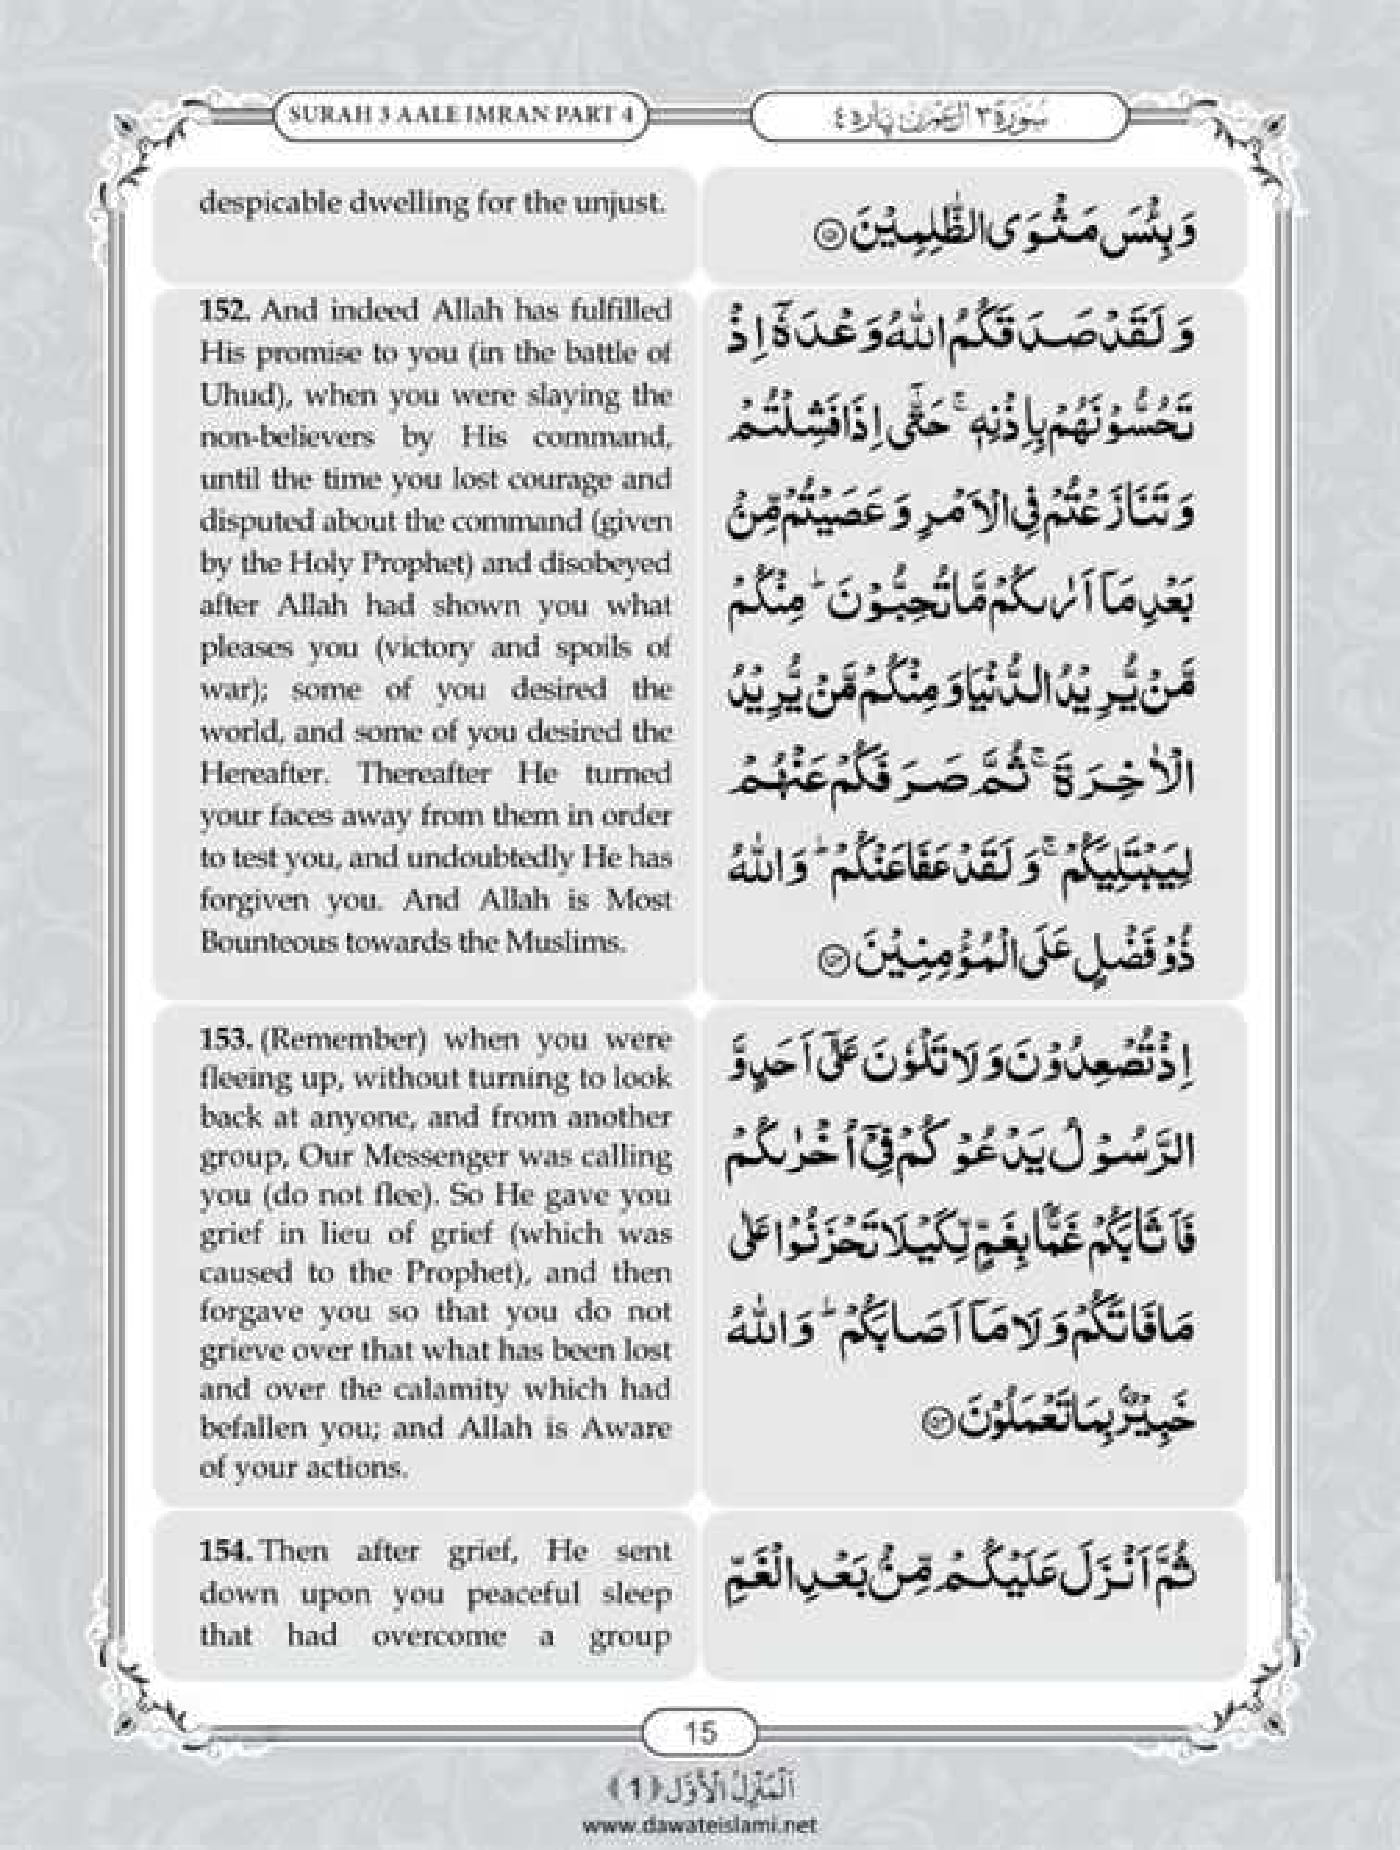 SURAH 3 AALE IMRAN PART 4
سُوْرَة ٣ اٰل عِمْرٰن پاره ٤
despicable dwelling for the unjust.
وَ بِئْسَ مَثْوَى الظّٰلِمِيْنَ ﴿١٥١﴾
152. And indeed Allah has fulfilled
His promise to you (in the battle of
Uhud), when you were slaying the
non-believers by His command,
until the time you lost courage and
disputed about the command (given
by the Holy Prophet) and disobeyed
after Allah had shown you what
pleases you (victory and spoils of
war); some of you desired the
world, and some of you desired the
Hereafter. Thereafter He turned
your faces away from them in order
to test you, and undoubtedly He has
forgiven you. And Allah is Most
Bounteous towards the Muslims.
وَ لَقَدْ صَدَقَكُمُ اللّٰهُ وَعْدَهٗۤ اِذْ
تَحُسُّوْنَهُمْ بِاِذْنِهٖ ۚ حَتّٰۤى اِذَا فَشِلْتُمْ
وَ تَنَازَعْتُمْ فِي الْاَمْرِ وَ عَصَيْتُمْ مِّنْۢ
بَعْدِ مَاۤ اَرٰىكُمْ مَّا تُحِبُّوْنَ ؕ مِنْكُمْ
مَّنْ يُّرِيْدُ الدُّنْيَا وَ مِنْكُمْ مَّنْ يُّرِيْدُ
الْاٰخِرَةَ ۚ ثُمَّ صَرَفَكُمْ عَنْهُمْ
لِيَبْتَلِيَكُمْ ۚ وَ لَقَدْ عَفَا عَنْكُمْ ؕ وَ اللّٰهُ
ذُوْ فَضْلٍ عَلَى الْمُؤْمِنِيْنَ ﴿١٥٢﴾
153. (Remember) when you were
fleeing up, without turning to look
back at anyone, and from another
group, Our Messenger was calling
you (do not flee). So He gave you
grief in lieu of grief (which was
caused to the Prophet), and then
forgave you so that you do not
grieve over that what has been lost
and over the calamity which had
befallen you; and Allah is Aware
of your actions.
اِذْ تُصْعِدُوْنَ وَ لَا تَلْوٗنَ عَلٰۤى اَحَدٍ وَّ
الرَّسُوْلُ يَدْعُوْكُمْ فِيْۤ اُخْرٰىكُمْ
فَاَثَابَكُمْ غَمًّۢا بِغَمٍّ لِّكَيْلَا تَحْزَنُوْا عَلٰى
مَا فَاتَكُمْ وَ لَا مَاۤ اَصَابَكُمْ ؕ وَ اللّٰهُ
خَبِيْرٌۢ بِمَا تَعْمَلُوْنَ ﴿١٥٣﴾
154. Then after grief, He sent
down upon you peaceful sleep
that had overcome a group
ثُمَّ اَنْزَلَ عَلَيْكُمْ مِّنْۢ بَعْدِ الْغَمِّ
15
اَلْمَنْزِلُ الْاَوَّل ﴿1﴾
www.dawateislami.net